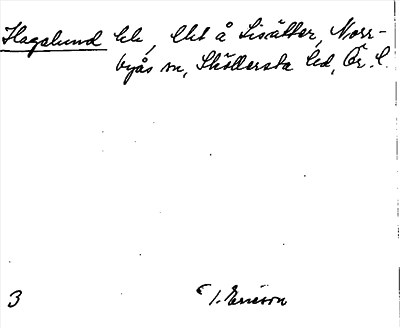 Hagalund lh, Utt å Sisätter, Norr-
byås sn, Sköllersta hd, Ör. l.
3 T. Ericson